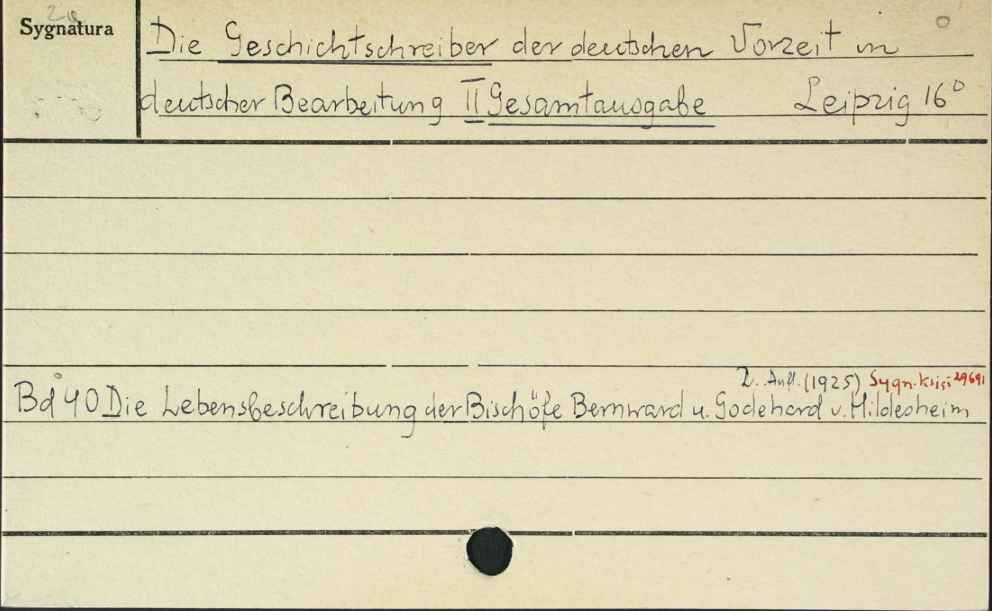 Sygnatura
Die Geschichtschreiber der deutschen Vorzeit in
deutscher Bearbeitung II Gesamtausgabe Leipzig 16°
2. Aufl. (1925) Sygn. księgi 29691
Bd 40 Die Lebensbeschreibung der Bischöfe Bernward u. Godehard v. Hildesheim